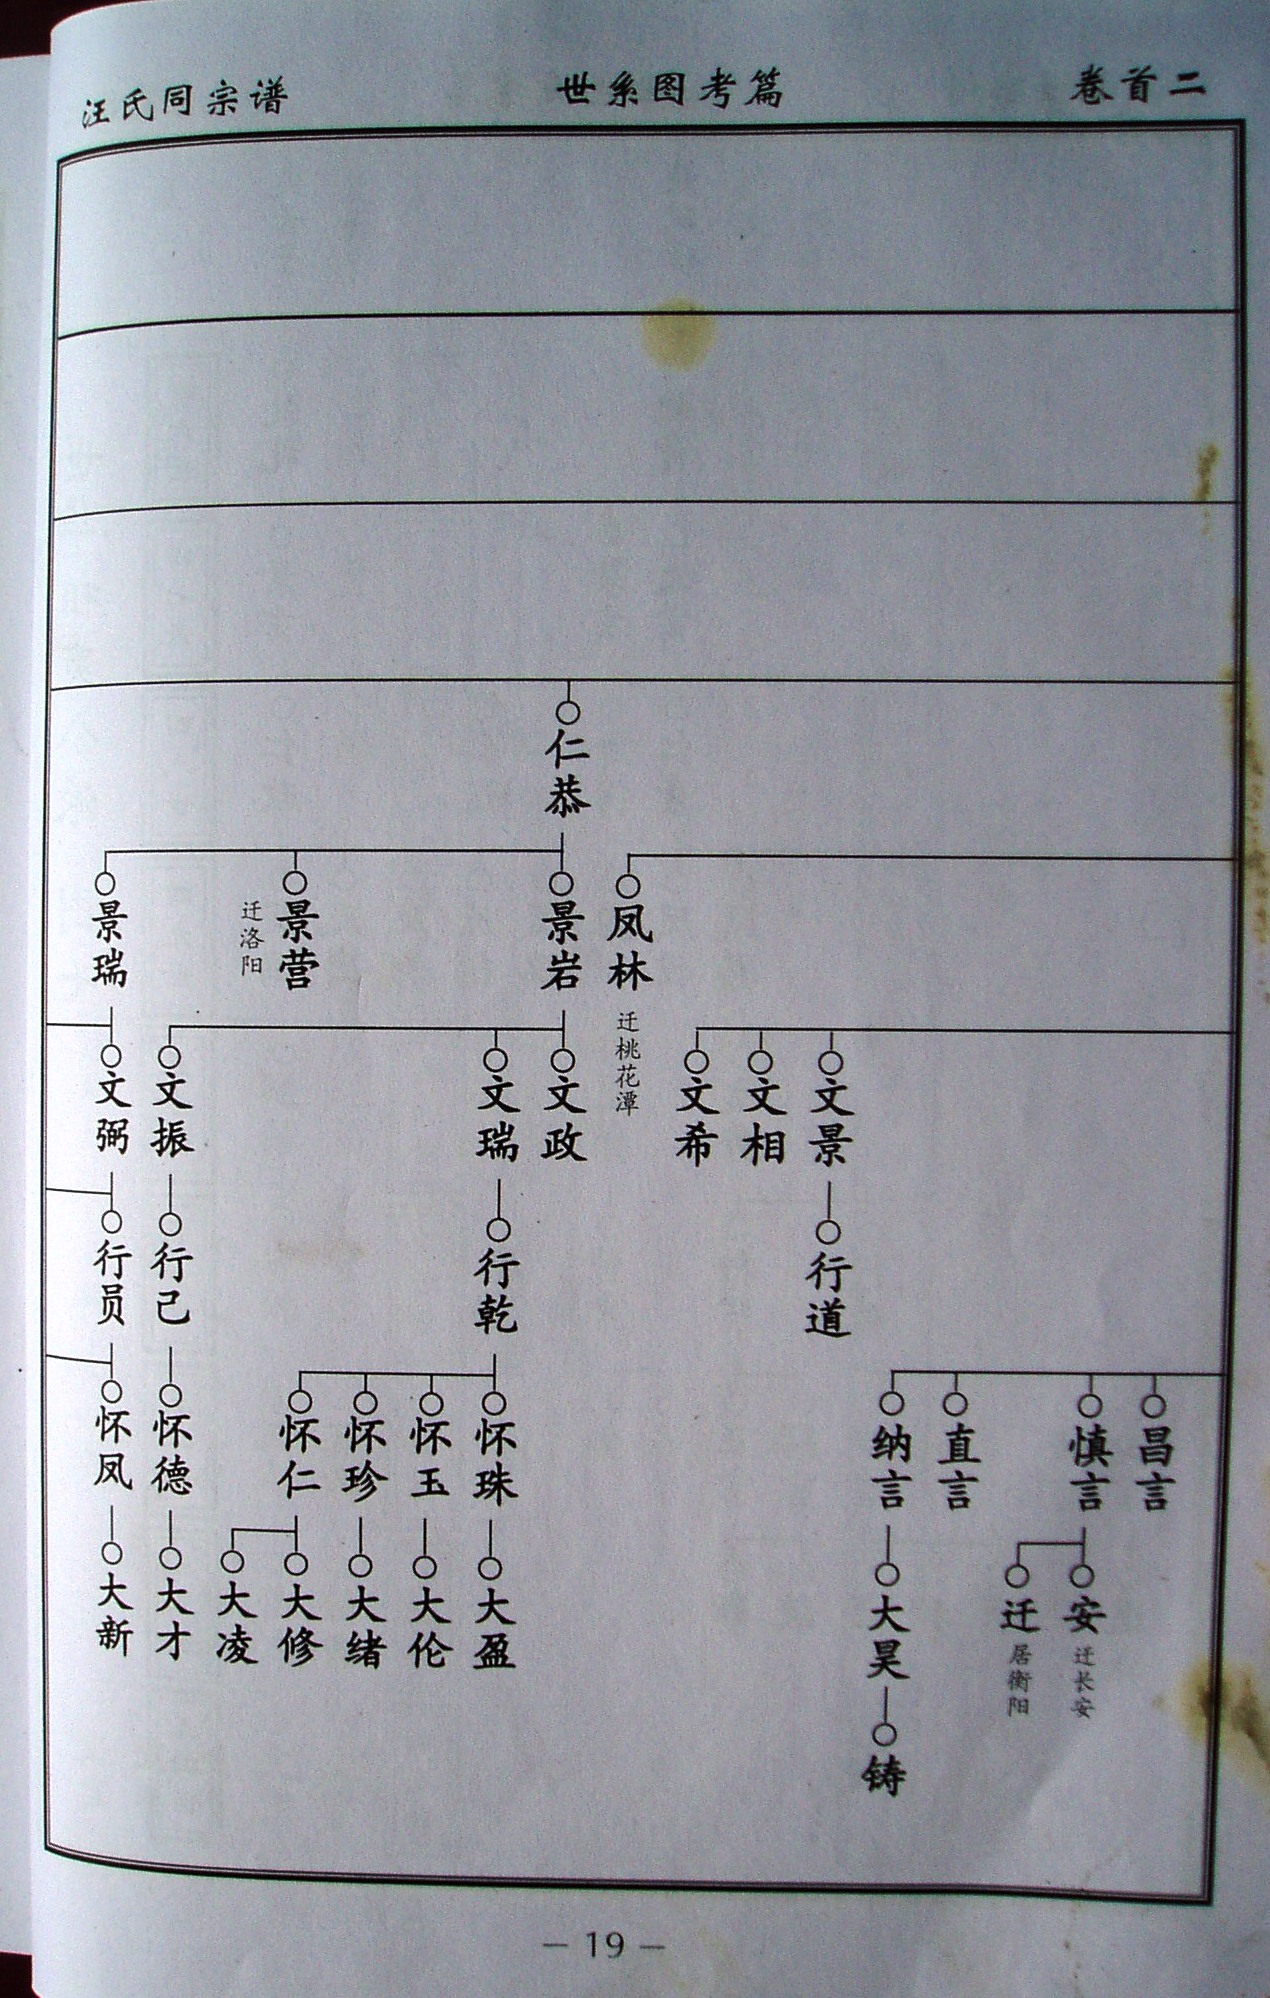 汪氏同宗谱
世系图考篇
卷首二
仁恭
景瑞
景营
迁洛阳
景岩
凤林
迁桃花潭
文弼
文振
文瑞
文政
文希
文相
文景
行员
行己
行乾
行道
怀凤
怀德
怀仁
怀珍
怀玉
怀珠
纳言
直言
慎言
昌言
大新
大才
大凌
大修
大绪
大伦
大盈
大昊
迁
居衡阳
安
迁长安
铸
— 19 —